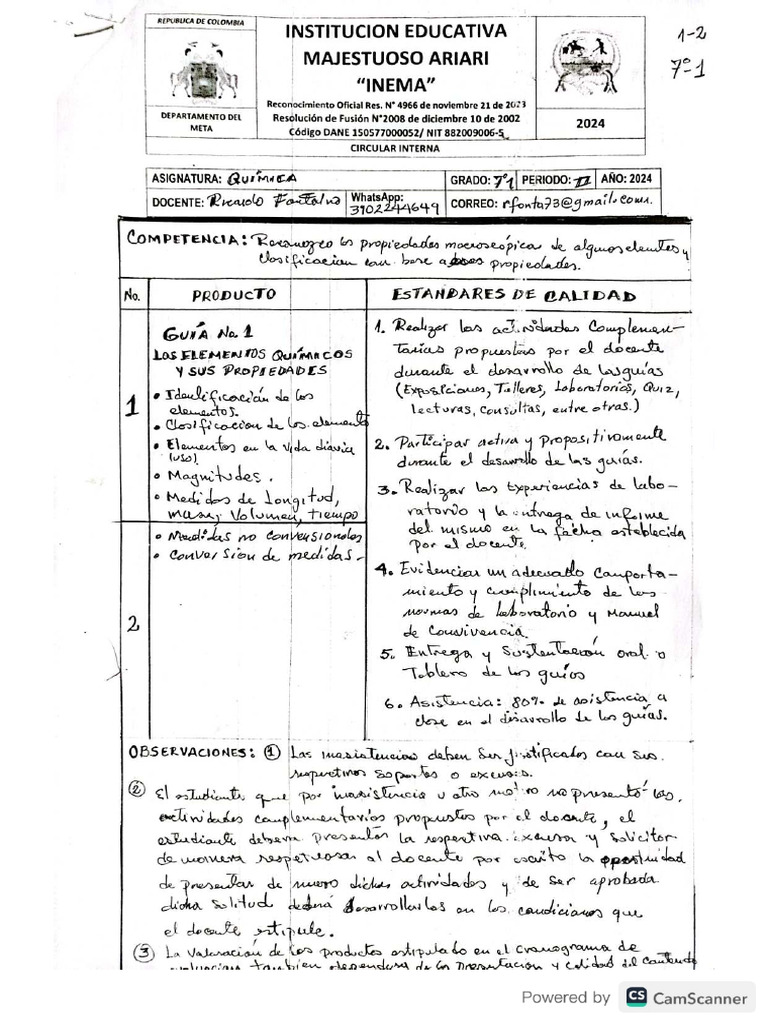 REPUBLICA DE COLOMBIA
DEPARTAMENTO DEL
META
INSTITUCION EDUCATIVA
MAJESTUOSO ARIARI
“INEMA”
Reconocimiento Oficial Res. N° 4966 de noviembre 21 de 2023
Resolución de Fusión N°2008 de diciembre 10 de 2002
Código DANE 150577000052/ NIT 882009006-5
2024
CIRCULAR INTERNA
1-2
7º1
ASIGNATURA: QUÍMICA GRADO: 7º1 PERIODO: II AÑO: 2024
DOCENTE: Ricardo WhatsApp: 3902244649 CORREO: rfonta73@gmail.com.
COMPETENCIA: Reconozco las propiedades macroscópica de algunos elementos y
clasificacion con base a propiedades.
No. PRODUCTO ESTANDARES DE CALIDAD
1
GUÍA No. 1
LOS ELEMENTOS QUÍMICOS
Y SUS PROPIEDADES
• Identificación de los
elementos.
• Clasificacion de los elemento
• Elementos en la vida diaria
(uso).
• Magnitudes.
• Medidas de Longitud,
masa, Volumen, tiempo
2
• Medidas no convensionales
• Conversion de medidas-
1. Realizar las actividades Complemen-
tarias propuestas por el docente
durante el desarrollo de las guías
(Exposiciones, Talleres, Laboratorios, Quiz,
lecturas, consultas, entre otras.)
2. Participar activa y propositivamente
durante el desarrollo de las guías.
3. Realizar las Experiencias de labo-
ratorio y la entrega de informe
del mismo en la fecha establecida
por el docente.
4. Evidenciar un adecuado comporta-
miento y cumplimiento de las
normas de laboratorio y Manual
de Convivencia.
5. Entrega y Sustentación oral o
Tablero de las guías
6. Asistencia: 80% de asistencia a
clase en el desarrollo de las guías.
OBSERVACIONES: ① Las inasistencias deben ser justificadas con sus
respectivos soportes o excusas.
② El estudiante que por inasistencia u otro motivo no presentó las
actividades complementarias propuestas por el docente, el
estudiante debera presentar la respectiva excusa y solicitar
de manera respetuosa al docente por escrito la oportunidad
de presentar de nuevo dichas actividades y de ser aprobada
dicha solitud deberá desarrollarlas en las condiciones que
el docente estipule.
③ La valoración de los productos estipulado en el cronograma de
evaluación tambien dependera de la presentacion y calidad del contenido
Powered by CS CamScanner